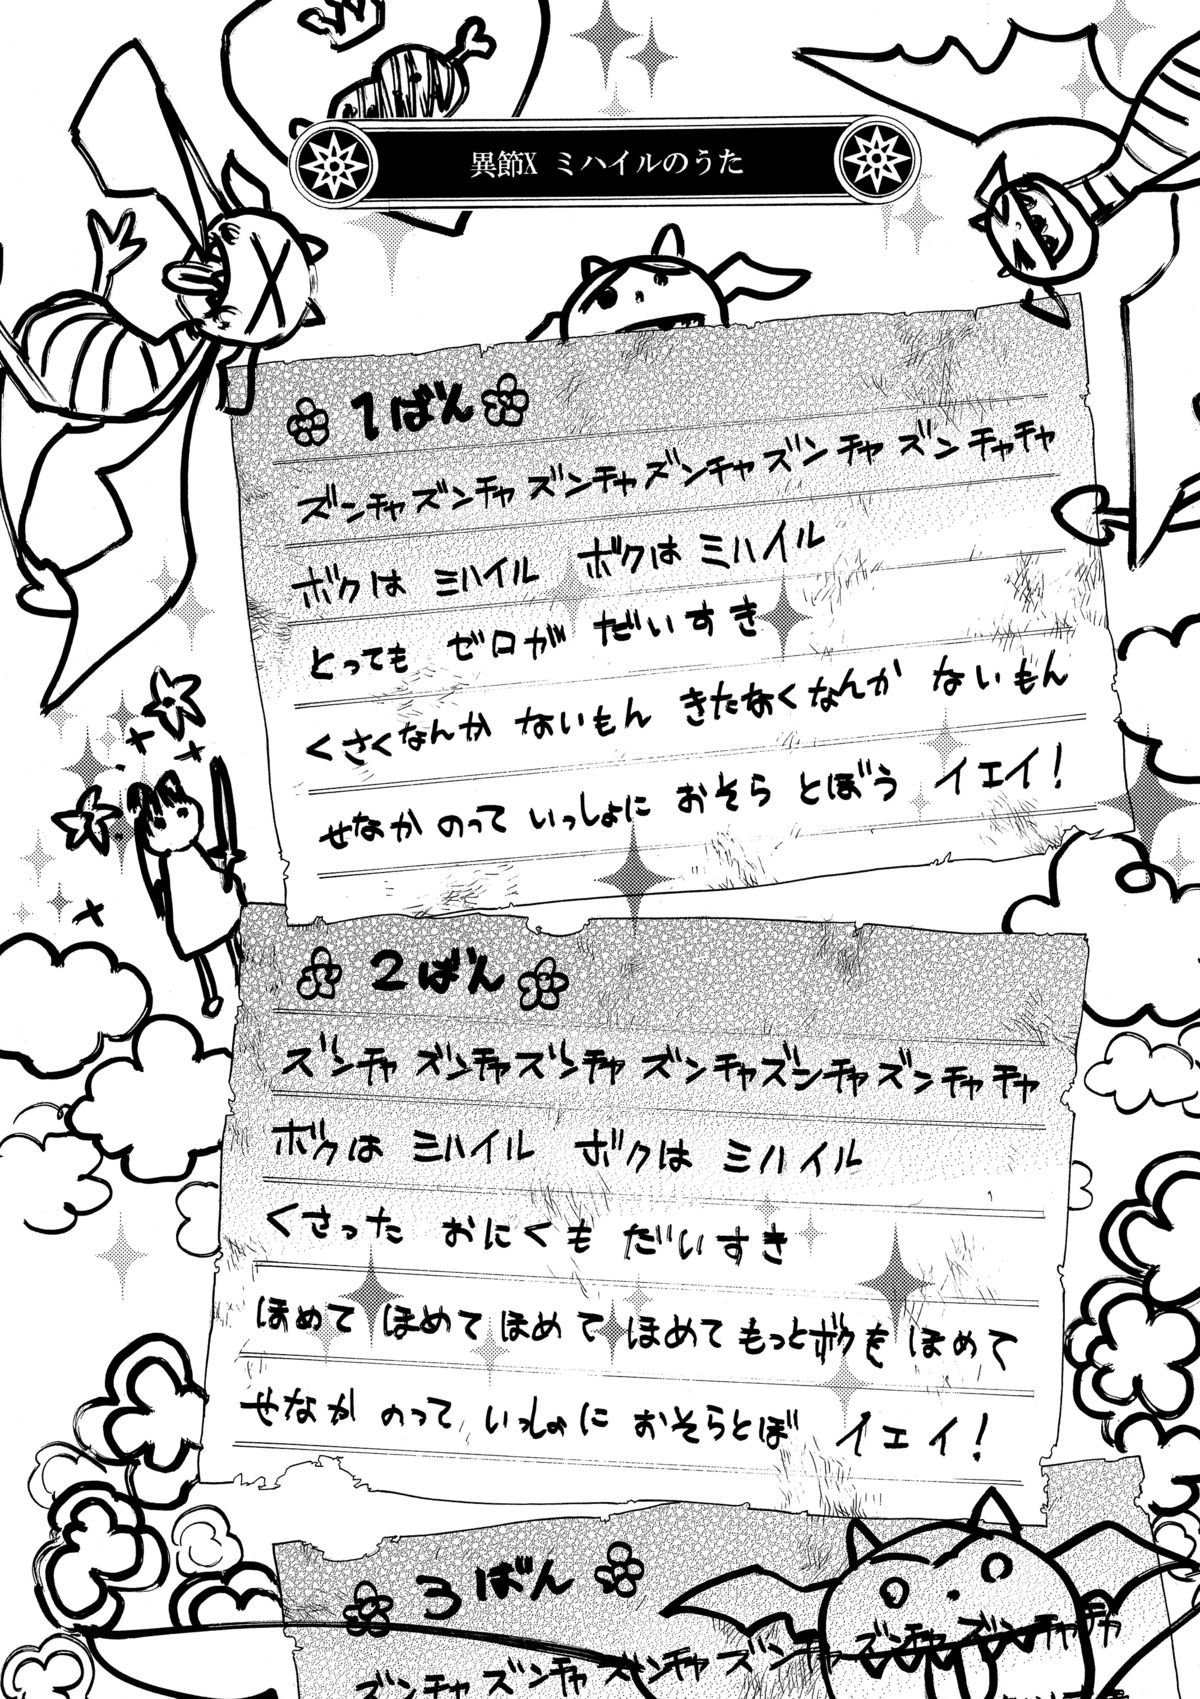 異節X ミハイルのうた
1ばん
ズンチャズンチャズンチャズンチャズンチャズンチャチャ
ボクは ミハイル ボクは ミハイル
とっても ゼロが だいすき
くさくなんか ないもん きたなくなんか ないもん
せなか のって いっしょに おそら とぼう イエイ!
2ばん
ズンチャ ズンチャズンチャ ズンチャズンチャズンチャチャ
ボクは ミハイル ボクは ミハイル
くさった おにくも だいすき
ほめて ほめて ほめて ほめて もっとボクを ほめて
せなか のって いっしょに おそらとぼ イエイ!
3ばん
ズンチャズンチャズンチャズンチャ ズンチャ ズンチャチャ